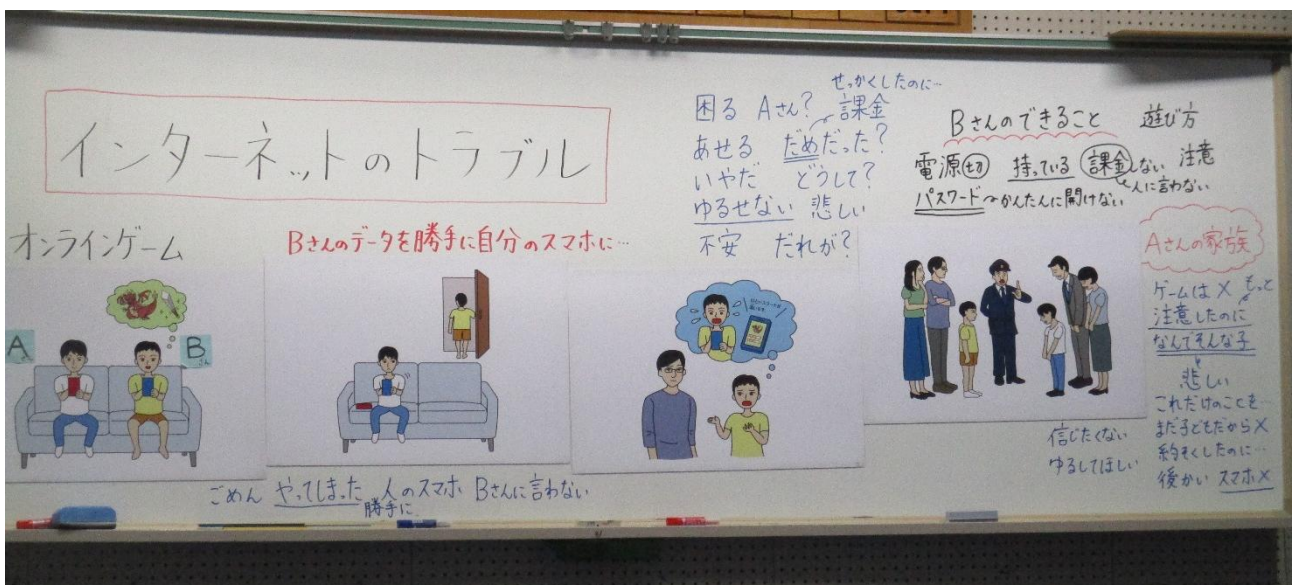 インターネットのトラブル
オンラインゲーム
A
B
さん
Bさんのデータを勝手に自分のスマホに…
ごめん やってしまった 人のスマホ Bさんに言わない
勝手に
せっかくしたのに…
困る Aさん? 課金
あせる だめだった?
いやだ どうして?
ゆるせない 悲しい
不安 だれが?
Bさんのできること 遊び方
電源切 持っている 課金しない 注意
人に言わない
パスワード かんたんに開けない
Aさんの家族
ゲームは× もっと
注意したのに
なんでそんな子
悲しい
これだけのことを…
まだ子どもだから×
約そくしたのに…
後かい スマホ×
信じたくない
ゆるしてほしい